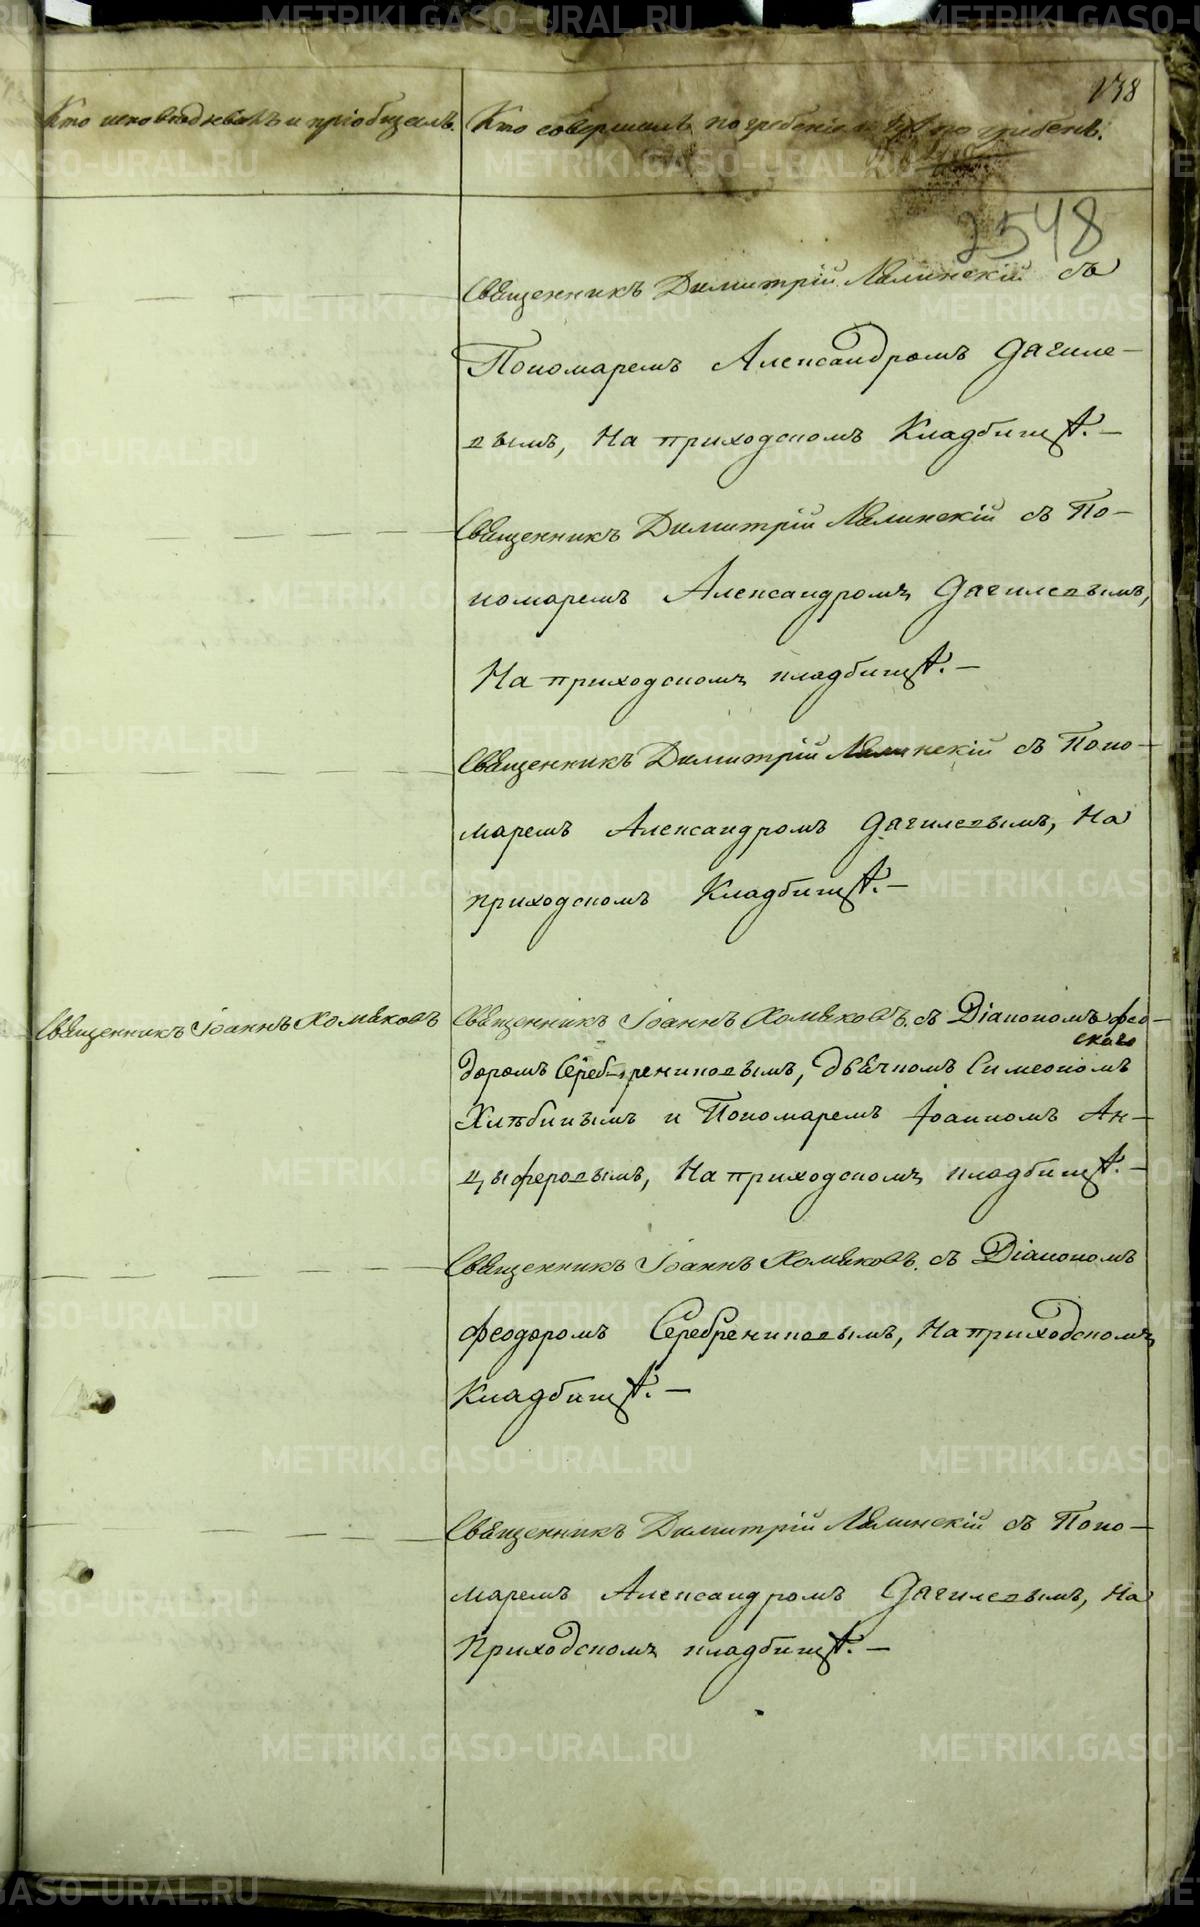 138
Кто исповѣдывалъ и пріобщалъ.
Кто совершалъ погребеніе и гдѣ погребены.
2548
Священникъ Димитрій Ляминскій съ
Пономаремъ Александромъ Дягиле-
вымъ, На приходскомъ Кладбищѣ.-
Священникъ Димитрій Ляминскій съ По-
номаремъ Александромъ Дягилевымъ,
На приходскомъ кладбищѣ.-
Священникъ Димитрій Ляминскій съ Поно-
маремъ Александромъ Дягилевымъ, На
приходскомъ Кладбищѣ.-
Священникъ Іоаннъ Хомяковъ
Священникъ Іоаннъ Хомяковъ съ Діакономъ Фео-
доромъ Серебрениковымъ, Дьячкомъ Симеономъ
Хлѣбинымъ и Пономаремъ Іоанномъ Ан-
цыферовымъ, На приходскомъ кладбищѣ.-
Священникъ Іоаннъ Хомяковъ съ Діакономъ
Феодоромъ Серебрениковымъ, На приходскомъ
Кладбищѣ.-
Священникъ Димитрій Ляминскій съ Поно-
маремъ Александромъ Дягилевымъ, На
Приходскомъ кладбищѣ.-
METRIKI.GASO-URAL.RU